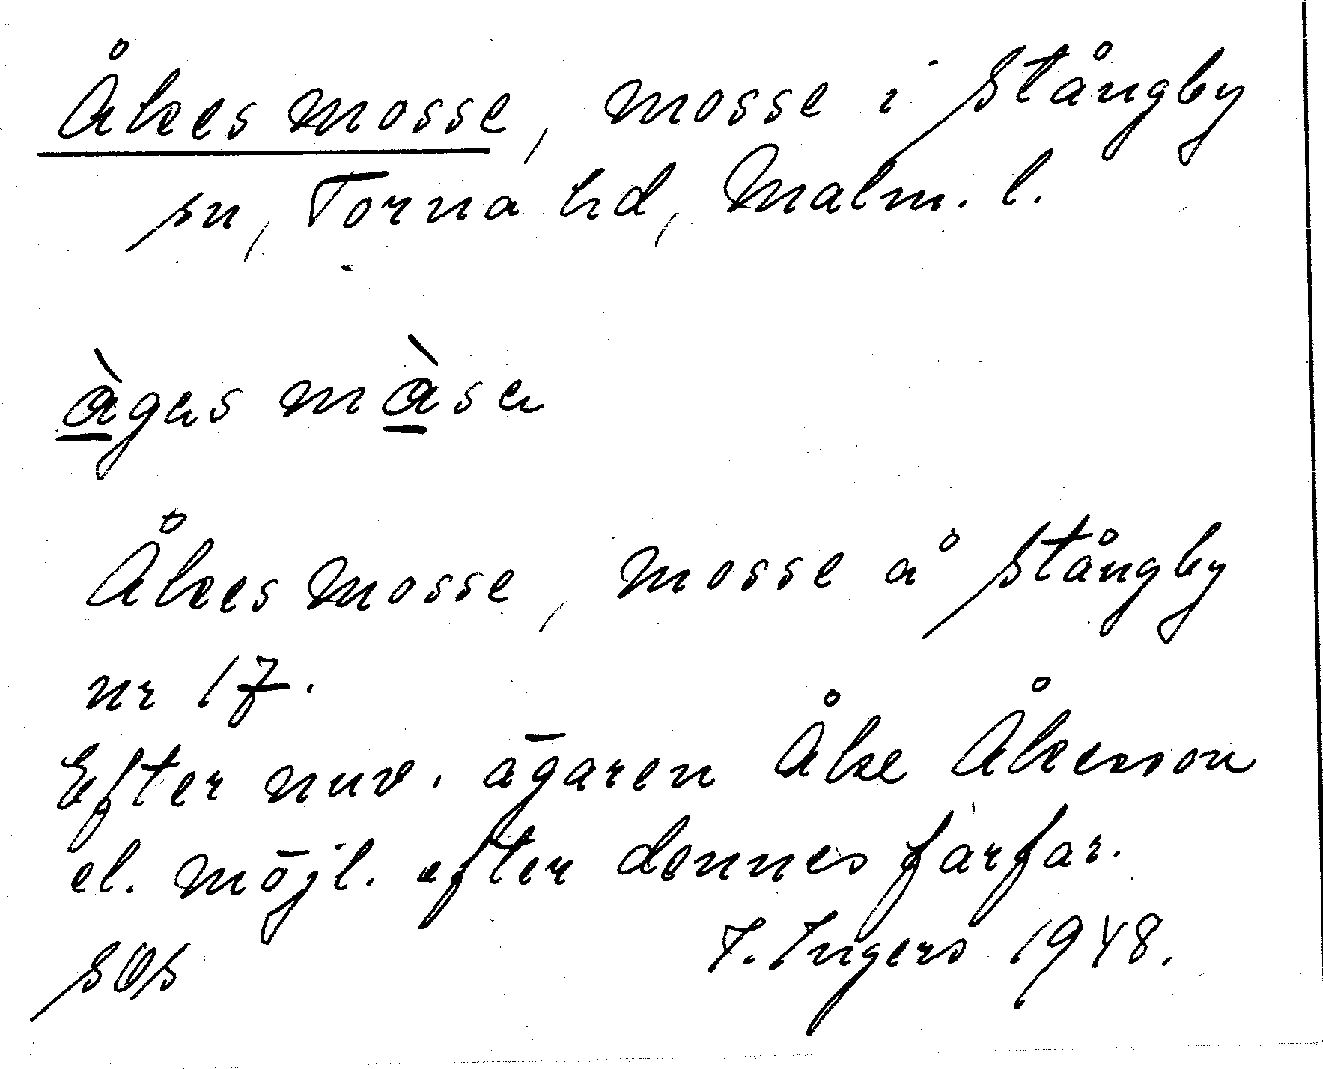 Åkes mosse, mosse i Stångby
sn, Torna hd, Malm. l.
Åkes mosse, mosse å Stångby
nr 17.
Efter nuv. ägaren Åke Åkesson
el. möjl. efter dennes farfar.
I. Ingers 1948.